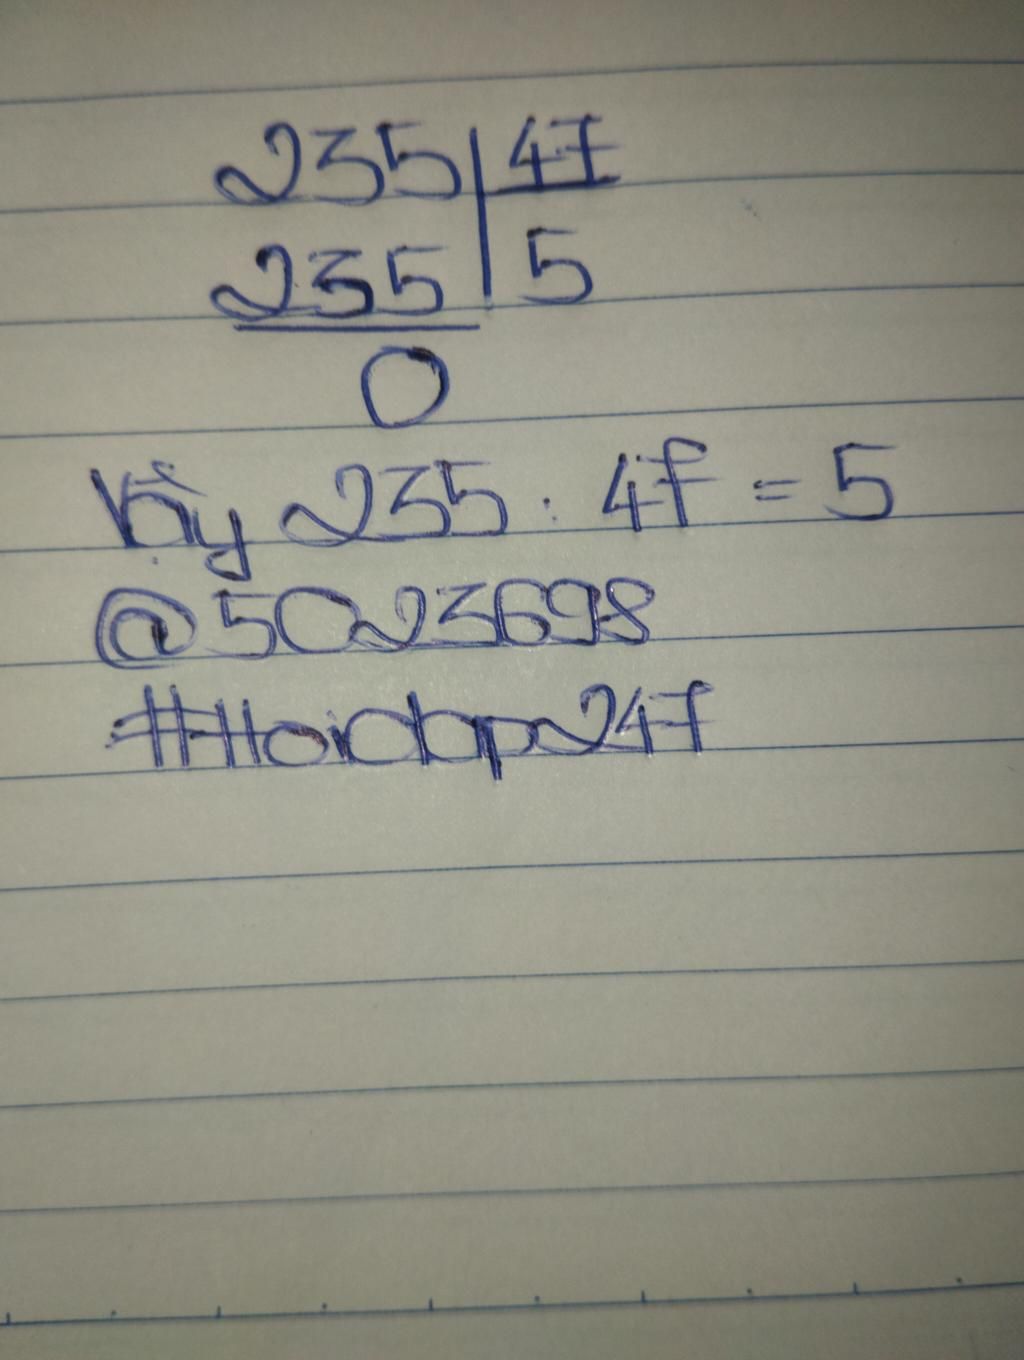 235 47
235 5
0
Vậy 235 : 47 = 5
@5023698
#Hoidap247